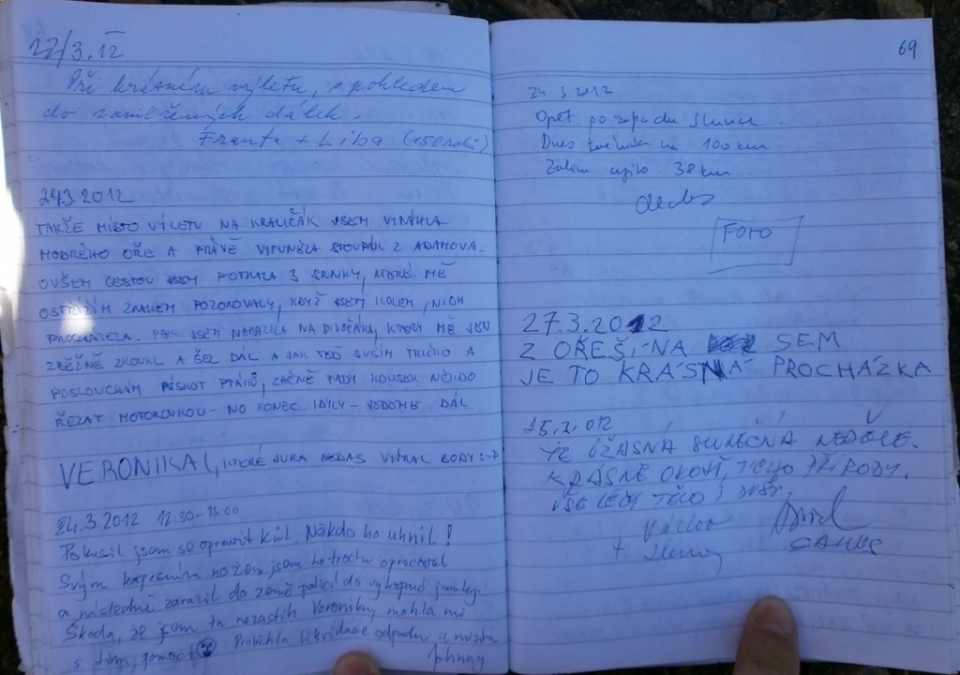 22/3.12
Při krásném výletu, s pohledem
do zamlžených dálek.
Franta + Liba (150 roků)
24.3.2012
TAKŽE MÍSTO VÝLETU NA KRALIČÁK JSEM VYTÁHLA
MODRÉHO OŘE A PRÁVĚ VYFUNĚLA STOUPÁK Z ADAMOVA.
OVŠEM CESTOU JSEM POTKALA 3 SRNKY, KTERÉ MĚ
OSTRAŽITÝM ZRAKEM POZOROVALY, KDYŽ JSEM KOLEM NICH
PROCHÁZELA. PAK JSEM NARAZILA NA DIVOČÁKA, KTERÝ MĚ JEN
ZBĚŽNĚ ZHOUKL A ŠEL DÁL A JAK TEĎ SUŠÍM TRIČKO A
POSLOUCHÁM PÍSKOT PTÁKŮ, ZAČNE TADY KOUSEK NĚKDO
ŘEZAT MOTOROVKOU - NO KONEC IDYLY - JEDEME DÁL.
VERONIKA (, KTERÉ JURA NEDAS VYŽRAL BODY :-P
24.3.2012 12:30-13:00
Pokusil jsem se opravit kůl. Někdo ho uhnil!
Svým kapesním nožem jsem ho trochu opracoval
a následně zarazil do země do vykopané jamky.
Škoda, že jsem tu nezastih Veroniku, mohla mi
s tím pomoct Proběhla likvidace odpadu u
Johnny
69
24 3 2012
Opět po západu slunce.
Dnes na 100 km.
Zatím ujito 38 km.
FOTO
27.3.2012
Z OŘEŠÍNA SEM
JE TO KRÁSNÁ PROCHÁZKA
25.3.012
JE ÚŽASNÁ SLUNEČNÁ NEDĚLE.
KRÁSNÉ OKOLÍ, TICHO PŘÍRODY.
VŠE LÉČÍ TĚLO I DUŠI.
Václav
+